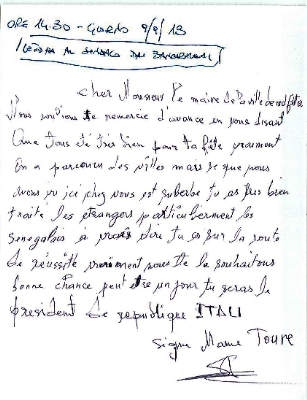 ORE 14:30 - GIORNO 9/9/13
Cher Monsieur le maire de la ville
Nous voulions te remercie d'avance en vous disant
Que tous été très bien pour ta fête vraiment
On a parcouru des villes mais ce que nous
avons vu ici chez vous est superbe tu as très bien
traité les étrangers particulièrement les
senegalais a vrais dire tu es sur la route
de réussite vraiment nous te le souhaitons
bonne chance peut être un jour tu seras le
president de republique ITALI
Signe Mame Toure